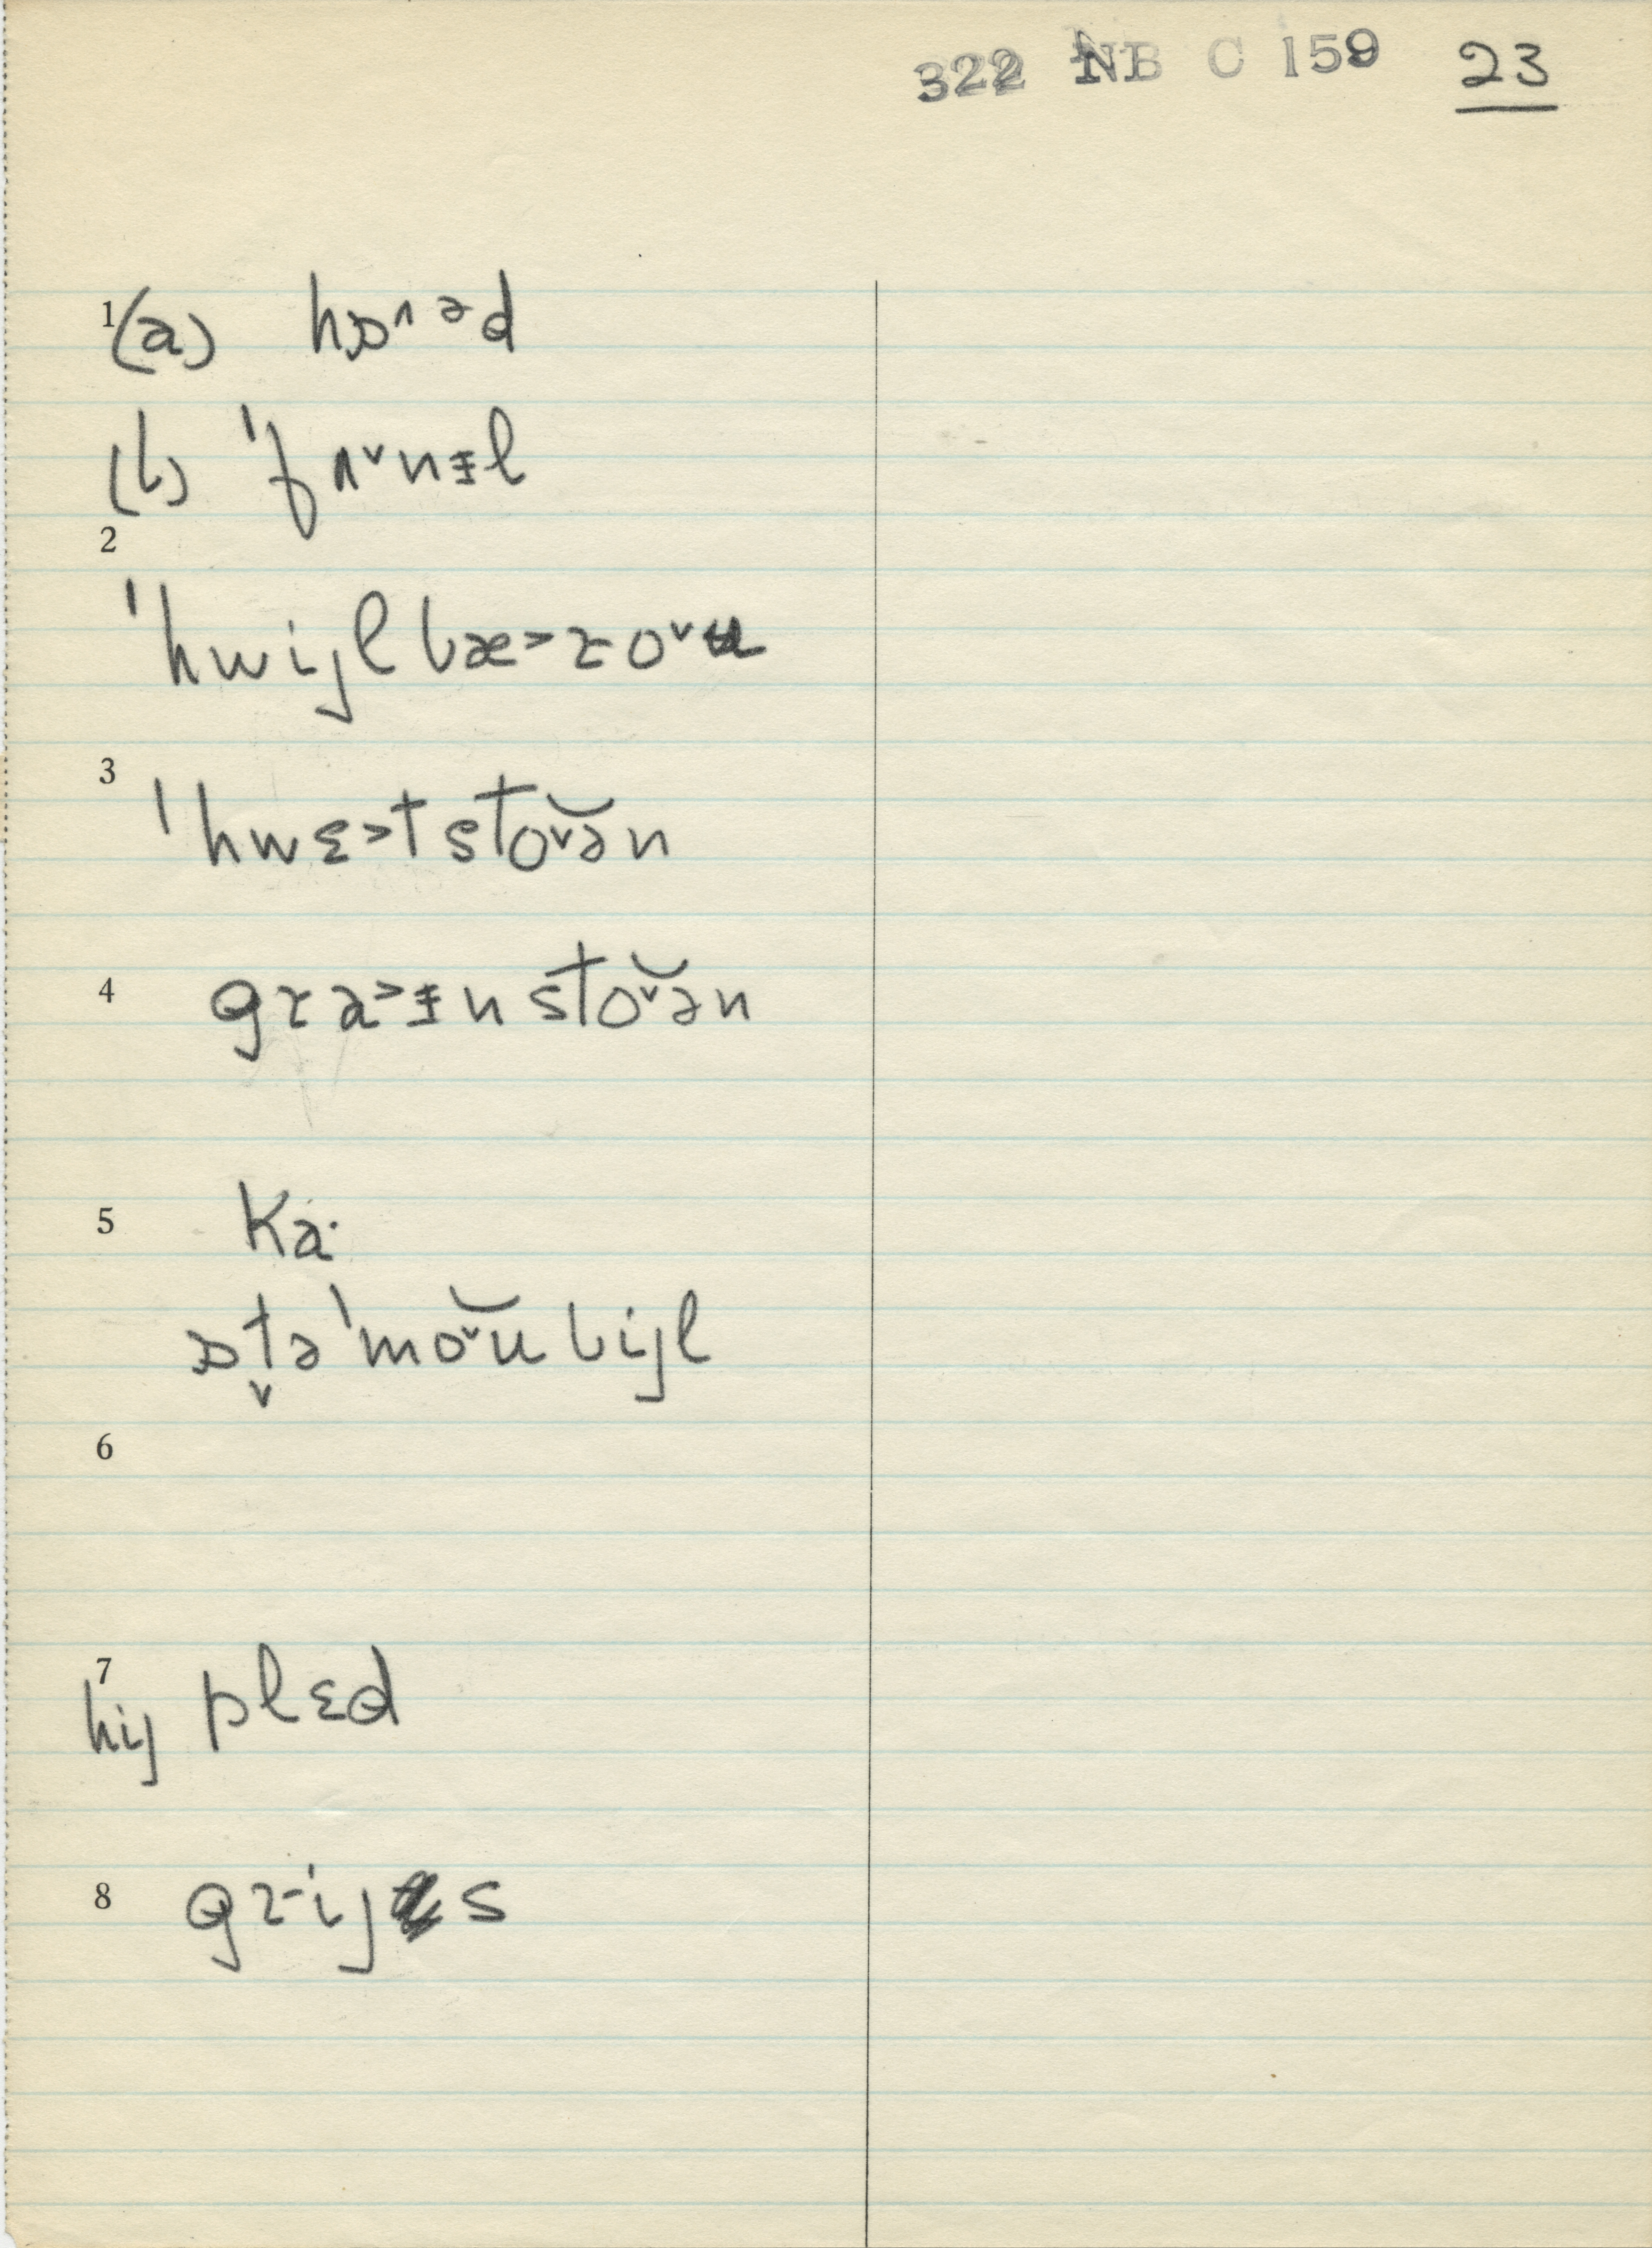 322 NB C 159 23
1 (a) hɒ^əd
(b) 'fʌ˅nɨl
2
'hwijlbæ˃ro˅u
3 'hwɛ˃tsto˅ə̆n
4 gra˃ɨnsto˅ə̆n
5 Ka·
ɒt̬ə'mo˅ŭbijl
6
7 hij plɛd
8 grijs